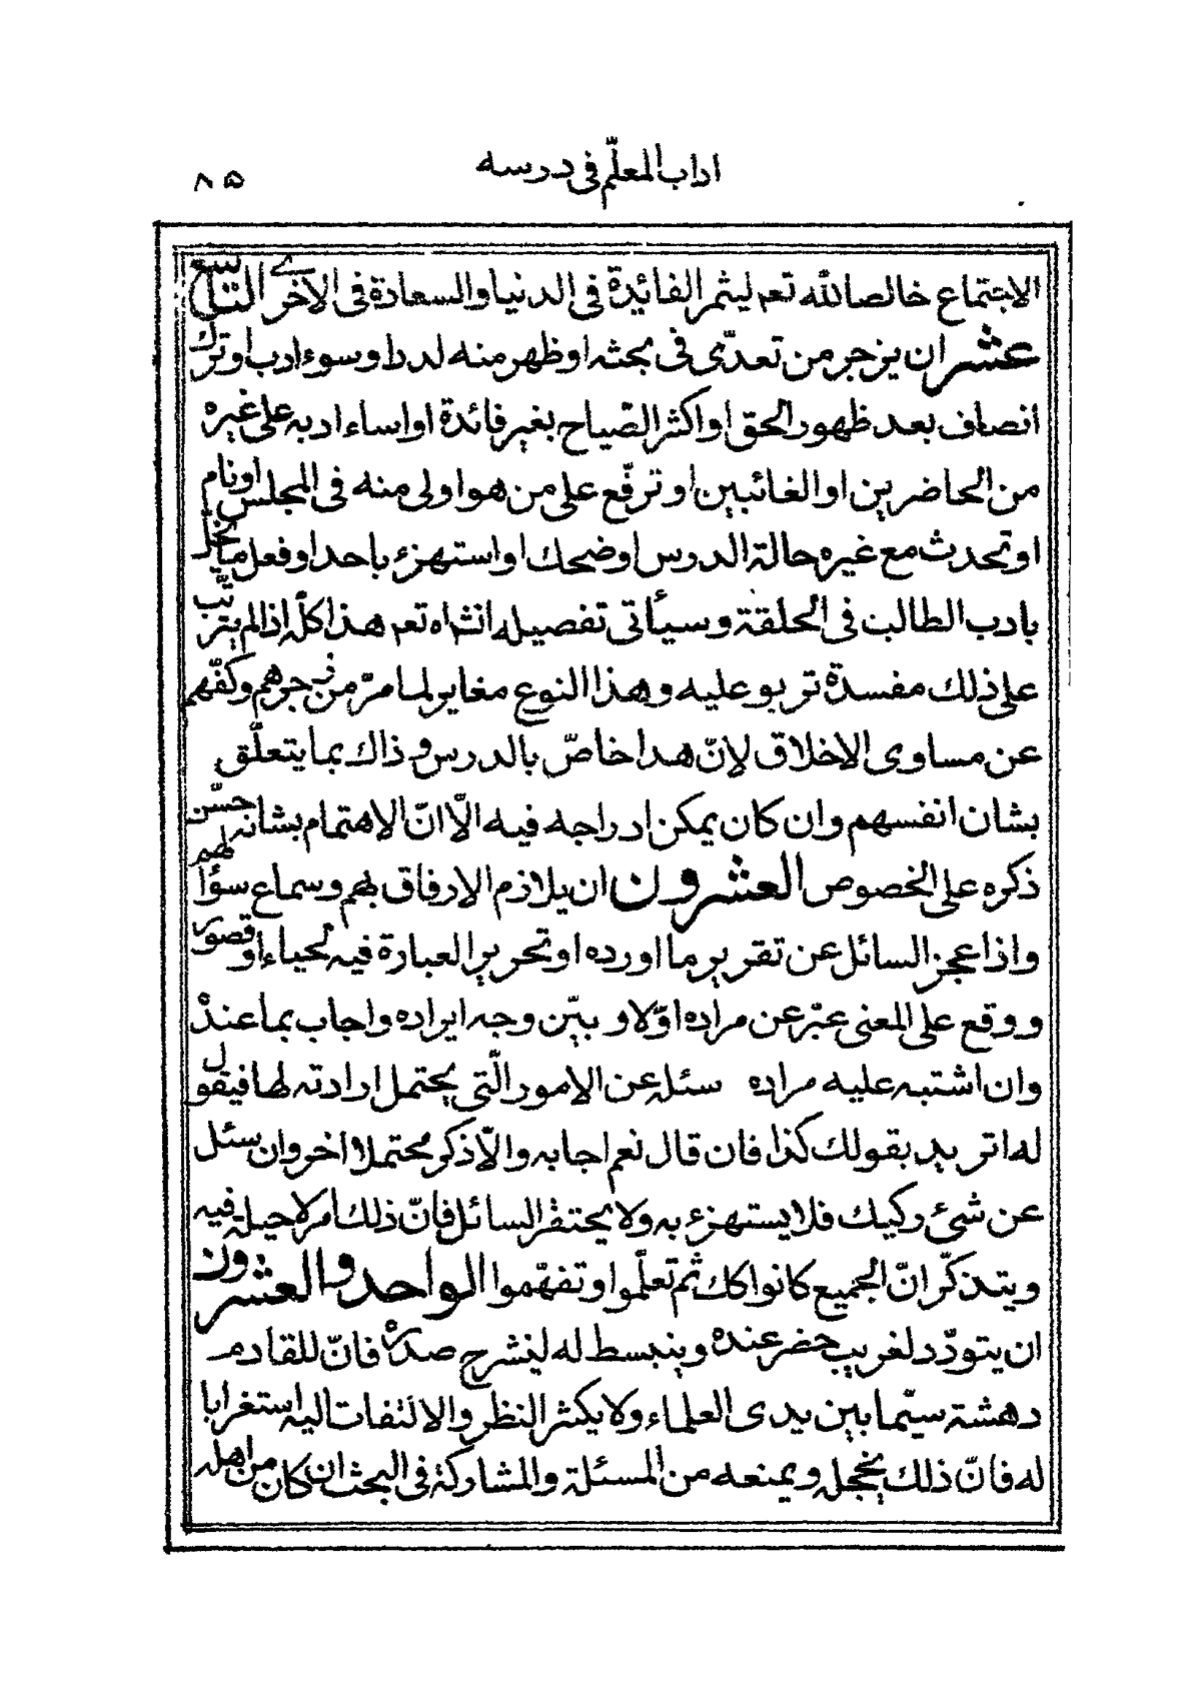 اداب المعلّم فى درسه
٨۵
الاجتماع خالصا لله تعم ليثمر الفائدة فى الدنيا والسعادة فى الاخرى التاسع
عشر ان يزجر من تعدّى فى بحثه او ظهر منه لدد او سوء ادب او ترك
انصاف بعد ظهور الحق او اكثر الصّياح بغير فائدة او اساء ادبه على غيره
من الحاضرين او الغائبين او ترفّع على من هو اولى منه فى المجلس او نام
او تحدث مع غيره حالة الدرس او ضحك او استهزء باحد او فعل ما يخلّ
بادب الطالب فى الحلقة وسيأتى تفصيله انشاه تعم هذا كلّه اذا لم يترتّب
على ذلك مفسدة تربو عليه وهذا النوع مغاير لما مرّ من زجرهم وكفّهم
عن مساوى الاخلاق لانّ هذا خاصّ بالدرس و ذاك بما يتعلّق
بشان انفسهم وان كان يمكن ادراجه فيه الّا انّ الاهتمام بشانه حسّن
ذكره على الخصوص العشرون ان يلازم الارفاق بهم وسماع سؤالهم
واذا عجز السائل عن تقرير ما اورده او تحرير العبارة فيه لحياء او قصور
ووقع على المعنى عبّر عن مراده اوّلا و بيّن وجه ايراده واجاب بما عنده
وان اشتبه عليه مراده سئله عن الامور الّتى يحتمل ارادته لها فيقول
له اتريد بقولك كذا فان قال نعم اجابه والّا ذكر محتملا اخر وان سئل
عن شئ ركيك فلا يستهزء به ولا يحتقر السائل فانّ ذلك امر لا حيلة فيه
ويتذكّر انّ الجميع كانوا كك ثم تعلّموا و تفهّموا الواحد و العشرون
ان يتودّد لغريب حضر عنده وينبسط له لينشرح صدره فانّ للقادم
دهشة سيّما بين يدى العلماء ولا يكثر النظر والالتفات اليه استغرابا
له فانّ ذلك يخجله ويمنعه من المسئلة والمشاركة فى البحث ان كان من اهله